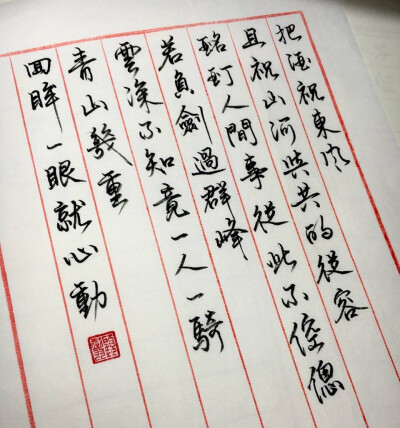 把酒祝東風
且祝山河與共的從容
酩酊人間事從此不倥傯
若負劍過群峰
雲深不知竟一人一騎
青山幾重
回眸一眼就心動